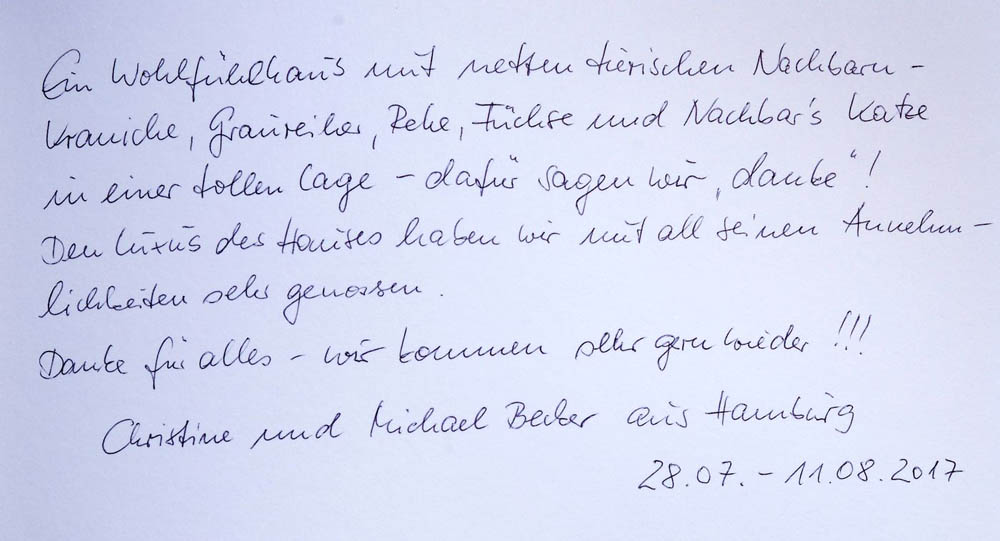 Ein Wohlfühlhaus mit netten tierischen Nachbarn –
Kraniche, Graureiher, Rehe, Füchse und Nachbar's Katze
in einer tollen Lage – dafür sagen wir „danke“!
Den Luxus des Hauses haben wir mit all seinen Annehm–
lichkeiten sehr genossen.
Danke für alles – wir kommen sehr gern wieder !!!
Christine und Michael Becker aus Hamburg
28.07. – 11.08.2017